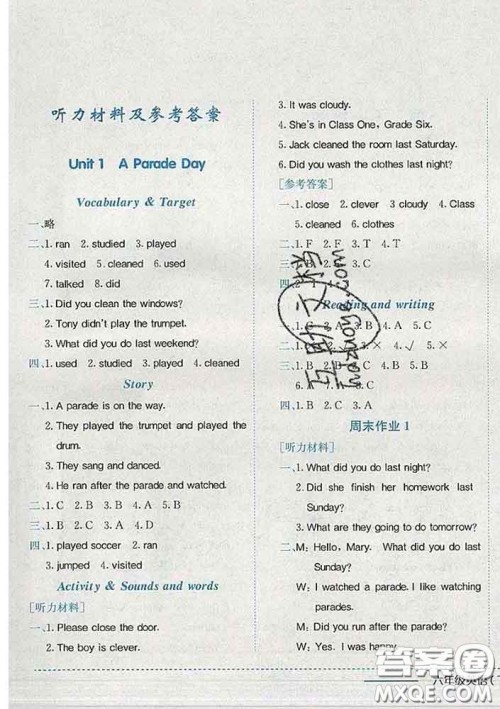 听力材料及参考答案
Unit 1 A Parade Day
Vocabulary & Target
一、略
二、1. ran 2. studied 3. played
4. visited 5. cleaned 6. used
7. talked 8. did
三、1. Did you clean the windows?
2. Tony didn't play the trumpet.
3. What did you do last weekend?
四、1. used 2. studied 3. played 4. cleaned
Story
一、1. A parade is on the way.
2. They played the trumpet and played the
drum.
3. They sang and danced.
4. He ran after the parade and watched.
二、1. C 2. B 3. A 4. B 5. A
三、1. B 2. B 3. A 4. C 5. C
四、1. played soccer 2. ran
3. jumped 4. visited
Activity & Sounds and words
[听力材料]
一、1. Please close the door.
2. The boy is clever.
3. It was cloudy.
4. She's in Class One, Grade Six.
5. Jack cleaned the room last Saturday.
6. Did you wash the clothes last night?
[参考答案]
一、1. close 2. clever 3 cloudy 4. Class
5. cleaned 6. clothes
二、1. F 2. F 3. T 4. T 5. F
三、1. B 2. C
四、2
Reading and writing
一、1. C 2. A 3. B 4. A 5. C
二、1. √ 2. × 3. × 4. √ 5. ×
三、1.
四、1. C 2. B 3. A
周末作业 1
[听力材料]
一、1. What did you do last night?
2. Did she finish her homework last
Sunday?
3. What are they going to do tomorrow?
二、M: Hello, Mary. What did you do last
Sunday?
W: I watched a parade. I like marching
parades.
M: Did you run after the parade?
W: Yes. I was happy.
六年级英语(
互助文档
huzuoye.com
答案卷
MXQE.COM